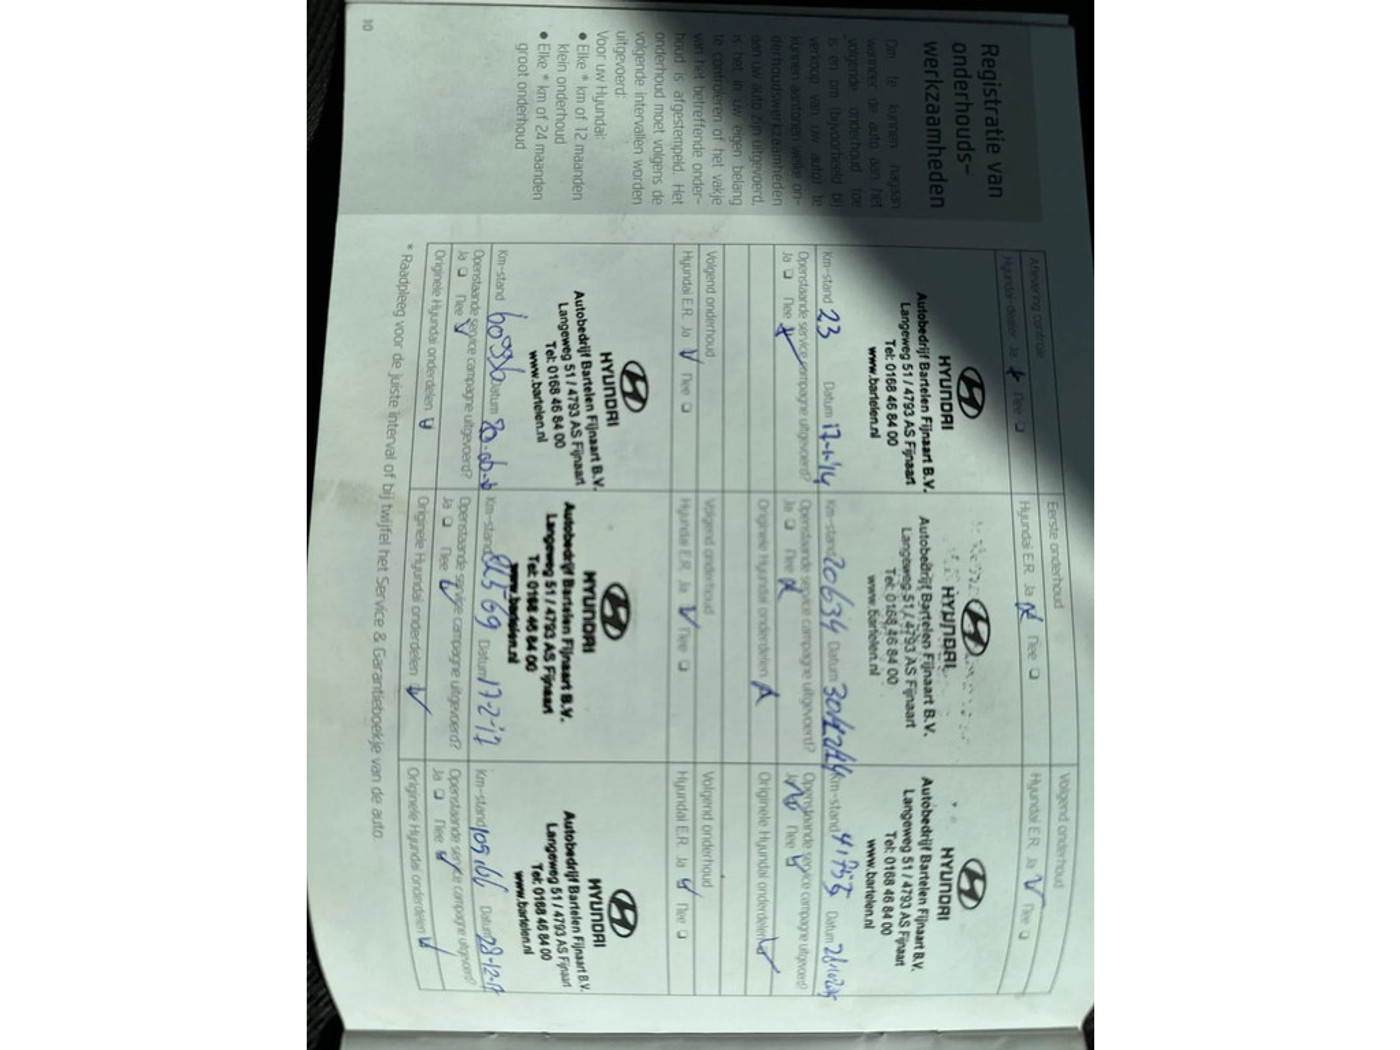 Registratie van
onderhouds-
werkzaamheden
Om te kunnen nagaan
wanneer de auto aan het
volgende onderhoud toe
is en om bijvoorbeeld bij
verkoop van uw auto te
kunnen aantonen welke on-
derhoudswerkzaamheden
aan uw auto zijn uitgevoerd,
is het in uw eigen belang
te controleren of het vakje
van het betreffende onder-
houd is afgestempeld. Het
onderhoud moet volgens de
volgende intervallen worden
uitgevoerd:
Voor uw Hyundai:
● Elke * km of 12 maanden
klein onderhoud
● Elke * km of 24 maanden
groot onderhoud
10
Aflevering controle
Hyundai-dealer Ja Nee
HYUNDAI
Autobedrijf Bartelen Fijnaart B.V.
Langeweg 51 / 4793 AS Fijnaart
Tel: 0168 46 84 00
www.bartelen.nl
Km-stand 23 Datum 17-1-'14
Openstaande service campagne uitgevoerd?
Ja Nee
Eerste onderhoud
Hyundai E.R. Ja Nee
HYUNDAI
Autobedrijf Bartelen Fijnaart B.V.
Langeweg 51 / 4793 AS Fijnaart
Tel: 0168 46 84 00
www.bartelen.nl
Km-stand 20634 Datum
Openstaande service campagne uitgevoerd?
Ja Nee
Originele Hyundai onderdelen
Volgend onderhoud
Hyundai E.R. Ja Nee
HYUNDAI
Autobedrijf Bartelen Fijnaart B.V.
Langeweg 51 / 4793 AS Fijnaart
Tel: 0168 46 84 00
www.bartelen.nl
Km-stand 41755 Datum
Openstaande service campagne uitgevoerd?
Ja Nee
Originele Hyundai onderdelen
Volgend onderhoud
Hyundai E.R. Ja Nee
HYUNDAI
Autobedrijf Bartelen Fijnaart B.V.
Langeweg 51 / 4793 AS Fijnaart
Tel: 0168 46 84 00
www.bartelen.nl
Km-stand Datum
Openstaande service campagne uitgevoerd?
Ja Nee
Originele Hyundai onderdelen
Volgend onderhoud
Hyundai E.R. Ja Nee
HYUNDAI
Autobedrijf Bartelen Fijnaart B.V.
Langeweg 51 / 4793 AS Fijnaart
Tel: 0168 46 84 00
www.bartelen.nl
Km-stand Datum 17-2-'17
Openstaande service campagne uitgevoerd?
Ja Nee
Originele Hyundai onderdelen
Volgend onderhoud
Hyundai E.R. Ja Nee
HYUNDAI
Autobedrijf Bartelen Fijnaart B.V.
Langeweg 51 / 4793 AS Fijnaart
Tel: 0168 46 84 00
www.bartelen.nl
Km-stand Datum 28-12-17
Openstaande service campagne uitgevoerd?
Ja Nee
Originele Hyundai onderdelen
* Raadpleeg voor de juiste interval of bij twijfel het Service & Garantieboekje van de auto.